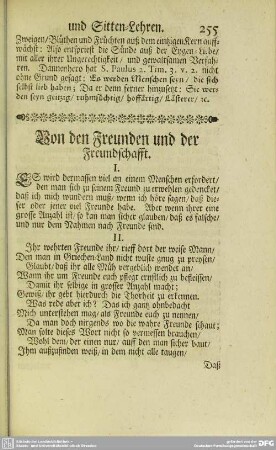 und Sitten-Lehren. 255
Zweigen/ Blüthen und Früchten auß dem eintzigen Kern auff-
wächst: Also entsprießt die Sünde auß der Eygen-Liebe/
mit aller ihrer Ungerechtigkeit/ und gewaltsamen Verfah-
ren. Dannenhero hat S. Paulus 2. Tim. 3. v. 2. nicht
ohne Grund gesagt: Es werden Menschen seyn/ die sich
selbst lieb haben; Da er denn ferner hinzusetzt: Sie wer-
den seyn geitzig/ ruhmsüchtig/ hoffärtig/ Lästerer/ ꝛc.
Von den Freunden und der
Freundschafft.
I.
ES wird dermassen viel an einem Menschen erfordert/
den man sich zu seinem Freund zu erwehlen gedencket/
daß ich mich wundern muß/ wenn ich höre sagen/ daß die-
ser oder jener viel Freunde habe. Aber wenn ihrer eine
grosse Anzahl ist/ so kan man sicher glauben/ daß es falsche/
und nur dem Nahmen nach Freunde sind.
II.
Ihr wehrten Freunde ihr/ rieff dort der weise Mann/
Den man in Griechen-Land nicht wuste gnug zu preysen/
Glaubt/ daß ihr alle Müh vergeblich wendet an/
Wann ihr um Freunde euch pflegt ernstlich zu befleissen/
Damit ihr selbige in grosser Anzahl macht:
Gewiß/ ihr gebt hierdurch die Thorheit zu erkennen.
Was rede aber ich? Das ich gantz ohnbedacht
Mich unterstehen mag/ als Freunde euch zu nennen/
Da man doch nirgends wo die wahre Freunde schaut;
Man solte dieses Wort nicht so vermessen brauchen/
Wohl dem/ der einen nur/ auff den man sicher baut/
Ihm außzufinden weiß/ in dem nicht alle taugen/
Daß